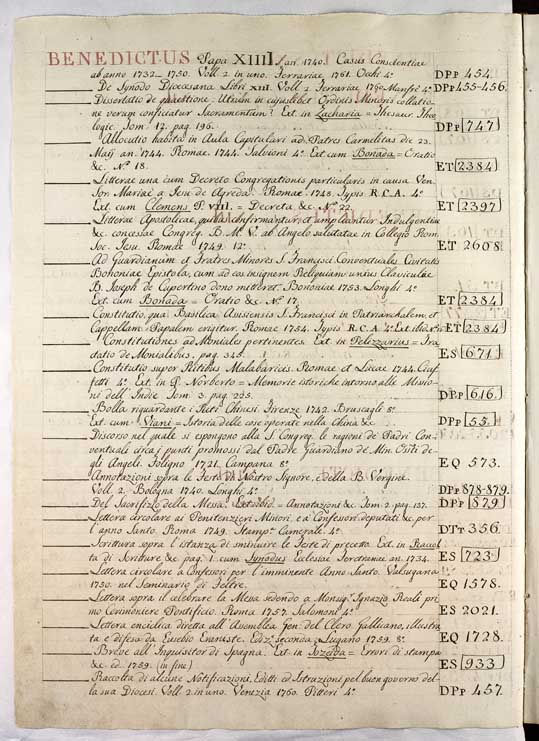 BENEDICTUS Papa XIIII, an. 1740. Casus Conscientiae
ab anno 1732–1750. Voll. 2 in uno. Ferrariae 1761. Occhi 4° DPp 454.
De Synodo Dioecesana Libri XIII. Voll 2 Ferrariae 1760. Manfrè 4° DPp 455-456.
Dissertatio de quaestione: Utrum in cujuslibet Ordinis Minoris collatio-
ne verum conficiatur Sacramentum? Ext. in Zacharia = Thesaur. Theo-
logic. Tom. 12. pag. 196. DPp 747
Allocutio habita in Aula Capitulari ad Patres Carmelitas die 23.
Maij an. 1744. Romae. 1744. Salvioni 4° Ext. cum Bonada = Oratio
&c. N° 18. ET 2384
Litterae una cum Decreto Congregationis particularis in causa Ven.
Sor. Mariae a Jesu de Agreda. Romae. 1748. Typis R.C.A. 4°
Ext. cum Clemens P. VIII. = Decreta &c N° 22. ET 2397
Litterae Apostolicae, quibus confirmantur, et ampliantur Indulgentiae
& concessae Congreg. B. M. V. ab Angelo salutatae in Collegio Rom.
Soc. Jesu. Romae 1749. 12° ET 2608.
Ad Guardianum et Fratres Minores S. Francisci Conventuales Civitatis
Bononiae Epistola, cum ad eos insignem Reliquiam unius Claviculae
B. Joseph de Cupertino dono mitteret. Bononiae 1753. Longhi 4°
Ext. cum Bonada = Oratio &c. N° 17. ET 2384
Constitutio, qua Basilica Assisiensis S. Francisci in Patriarchalem, et
Cappellam Papalem erigitur. Romae 1754. Typis R.C.A. 4° Ext. ibid. ET 2384
Constitutiones ad Moniales pertinentes. Ext. in Pelizzarius = Tra-
ctatio de Monialibus. pag. 345. ES 671
Constitutio super Ritibus Malabaricis. Romae, et Lucae 1744. Ciuf-
fetti 4° Ext. in P. Norberto = Memorie istoriche intorno alle Missio-
ni dell' Indie Tom. 3. pag. 235. DPp 616.
Bolla riguardante i Riti Chinesi. Firenze 1742. Bruscagli 8°
Ext. cum Viani = Istoria delle cose operate nella China &c DPp 55.
Discorso nel quale si espongono alla S. Congreg. le ragioni de' Padri Con-
ventuali circa i punti promossi dal Padre Guardiano de Min. Oss. de-
gli Angeli. Foligno 1721. Campana 8° EQ 573.
Annotazioni sopra le Feste di Nostro Signore, e della B. Vergine.
Voll. 2. Bologna 1740. Longhi 4° DPp 878-879.
Del Sacrifizio della Messa. Ext. ibid. = Annotazioni &c Tom. 2. pag. 137. DPp 879
Lettera circolare ai Penitenzieri Minori, e a' Confessori deputati &c. per
l'anno Santo. Roma 1749. Stamp.ª Camerale. 4° DTt 356.
Scrittura sopra l'istanza di sminuire le Feste di precetto. Ext. in Raccol-
ta di Scritture &c pag. 1. cum Synodus Ecclesiae an. 1734. ES 723
Lettera circolare a' Vescovi per l'imminente Anno Santo. Valsugana
1750. nel Seminario di Feltre. EQ 1578.
Lettera sopra il celebrare la Messa sedendo a Monsig.r Ignazio Reali pri-
mo Cerimoniere Pontificio. Roma 1757. Salomoni 4° ES 2021.
Lettera enciclica diretta all' Assemblea Gen. del Clero Gallicano, illustra-
ta e difesa da Eusebio Eraniste. Ediz.e seconda. Lugano 1759. 8° EQ 1728.
Breve all' Inquisitor di Spagna. Ext. in = Errori di stampa
&c. ed. 1759. (in fine) ES 933
Raccolta di alcune Notificazioni, Editti ed Istruzioni pel buon governo del-
la sua Diocesi. Voll 2 in uno. Venezia 1760. Pitteri 4° DPp 457.